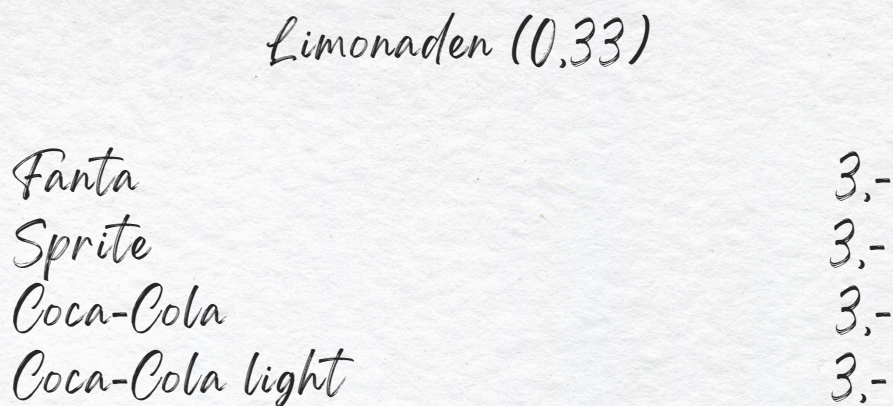 Limonaden (0,33)
Fanta 3,-
Sprite 3,-
Coca-Cola 3,-
Coca-Cola light 3,-